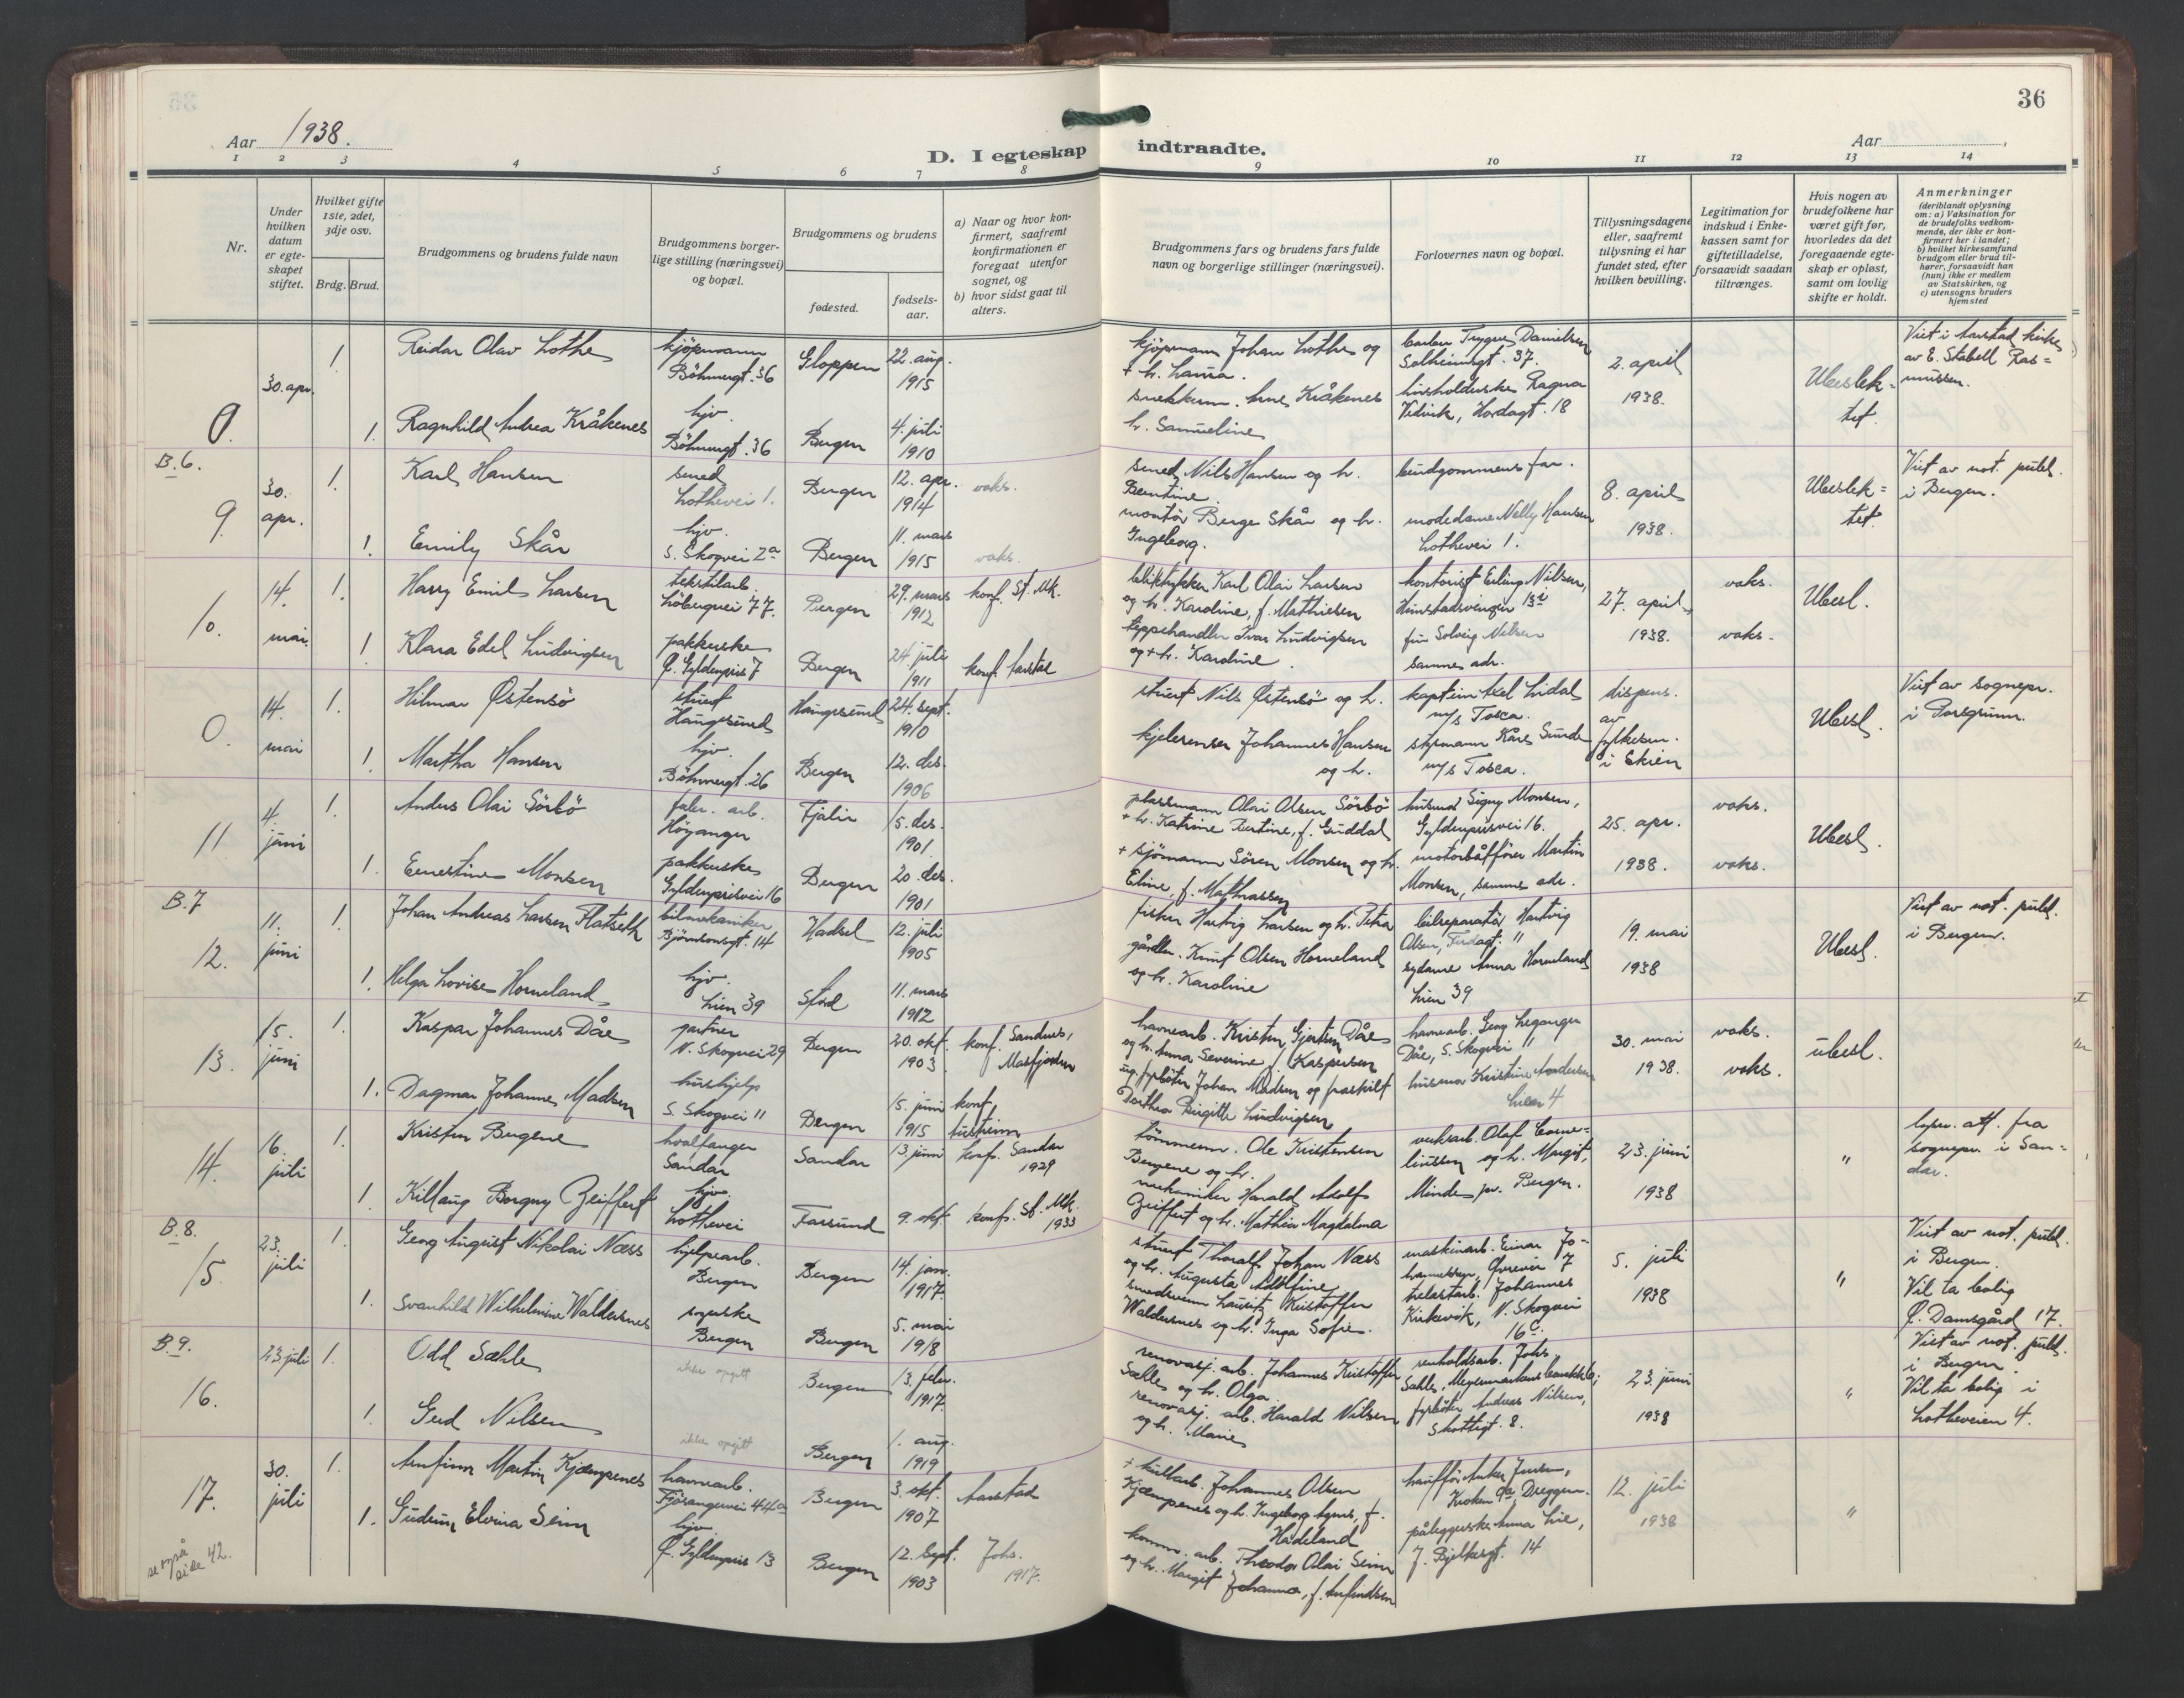 36
Aar 1938.
D. I egteskap indtraadte.
Aar
1 2 3 4 5 6 7 8 9 10 11 12 13 14
Nr.
Under hvilken datum er egteskapet stiftet.
Hvilket gifte 1ste, 2det, 3dje osv.
Brdg. Brud.
Brudgommens og brudens fulde navn
Brudgommens borgerlige stilling (næringsvei) og bopæl.
Brudgommens og brudens
fødested.
fødselsaar.
a) Naar og hvor konfirmert, saafremt konfirmationen er foregaat utenfor sognet, og
b) hvor sidst gaat til alters.
Brudgommens fars og brudens fars fulde navn og borgerlige stillinger (næringsvei).
Forlovernes navn og bopæl.
Tillysningsdagene eller, saafremt tillysning ei har fundet sted, efter hvilken bevilling.
Legitimation for indskud i Enkekassen samt for giftetilladelse, forsaavidt saadan tiltrænges.
Hvis nogen av brudefolkene har været gift før, hvorledes da det foregaaende egteskap er opløst, samt om lovlig skifte er holdt.
Anmerkninger
(deriblandt oplysning om: a) Vaksination for de brudefolks vedkommende, der ikke er konfirmert her i landet; b) hvilket kirkesamfund brudgom eller brud tilhører, forsaavidt han (hun) ikke er medlem av Statskirken, og c) utensogns bruders hjemsted
0. 30. apr. 1. Reidar Olav Lothe kjöpmann Böhmergt. 36 Gloppen 22. aug. 1915
kjöpmann Johan Lothe og + h. Laura. Trygve Danielsen Solheimsgt. 37. 2. april 1938. Ubeslektet Viet i Aarstad kirke av E. Stabell Rasmussen.
1. Ragnhild Andrea Kråkenes hjv. Böhmergt. 36 Bergen 4. juli 1910
Kråkenes h. Samueline husholderske Ragna Vedvik, Hordagt. 18
B. 6.
9. 30. apr. 1. Karl Hansen smed Lothevei 1. Bergen 12. apr. 1914 vaks.
smed Nils Hansen og h. Berntine brudgommens far. 8. april 1938. Ubeslektet. Viet av not. publ. i Bergen.
1. Emily Skår hjv. S. Skogvei 2a Bergen 11. mars 1915 vaks.
montör Berge Skår og h. Ingeborg. modedame Nelly Hansen Lothevei 1.
10. 14. mai 1. Harry Emil Larsen tekstilarb. Löbergvei 77. Bergen 29. mars 1912 konf. St. Mk.
Karl Olai Larsen og h. Karoline, f. Mathiesen kontorist Erling Nilsen, 27. april 1938. vaks. Ubesl.
1. Klara Edel Ludvigsen pakkerske Ø. Gyldenpris 7 Bergen 24. juli 1911 konf. Aarstad
teppehandler Ivar Ludvigsen og + h. Karoline. fru Solveig Nilsen samme adr. vaks.
0. 14. mai 1. Hilmar Østensö stuert Haugesund Haugesund 24. sept. 1910
stuert Nils Østensö og h. kaptein Axel Lidal m/s Tosca. dispens. av fylkesm. i Skien Ubesl. Viet av sognepr. i Porsgrunn.
1. Martha Hansen hjv. Böhmergt. 26 Bergen 12. des. 1906
kjelrenser Johannes Hansen og h. styrmann Kåre Sunde m/s Tosca.
11. 4. juni 1. Anders Olai Sörbö fabr. arb. Höyanger Fjaler 15. des. 1901
plassmann Olai Olsen Sörbö + h. Katrine Bertine, f. Guddal husmor Signy Monsen, Gyldenprisvei 16. 25. apr. 1938. vaks. Ubesl.
1. Ernestine Monsen pakkerske Gyldenprisvei 16 Bergen 20. des. 1901
+ sjömann Sören Monsen og h. Eline, f. Mathiassen motorbåtförer Martin Monsen, samme adr. vaks.
B. 7
12. 11. juni 1. Johan Andreas Larsen Flatseth bilmekaniker Björnsonsgt. 14 Hadsel 12. juli 1905
fisker Hartvig Larsen og h. Petra bilreparatör Hartvig Olsen, 19. mai 1938 Ubesl. Viet av not. publ. i Bergen.
1. Helga Lovise Horneland hjv. Lien 39 Stord 11. mars 1912
gårdbr. Knut Olsen Horneland og h. Karoline sydame Anna Horneland Lien 39
13. 15. juni 1. Kaspar Johannes Dåe gartner N. Skogvei 29 Bergen 20. okt. 1903 konf. Sandnes, Masfjorden
havnearb. Kristen Gjertsen Dåe og h. Anna Severine f. Kaspersen havnearb. Georg Leganger Dåe, S. Skogvei 11 30. mai 1938. vaks. vaks. ubesl.
1. Dagmar Johanne Madsen hushjelp S. Skogvei 11 Bergen 15. juni 1915 konf.
ug. fyrböter Johan Madsen og fraskilt Dorthea Birgitte Ludvigsen husmor Kristine Andersen Lien 4
14. 16. juli 1. Kristen Bugene hvalfanger Sandar Sandar 13. juni konf. Sandar 1929
tömmerm. Ole Kristensen Bergene og h. verksarb. Olaf og h. Margit, Minde pr. Bergen. 23. juni 1938 " lysn. att. fra sognepr. i Sandar.
1. Killaug Borgny Zeiffert hjv. Lothevei Farsund 9. okt. konf. St. Mk. 1933
mekaniker Harald Adolf Zeiffert og h. Mathea Magdalena
B. 8.
15. 23. juli 1. Georg August Nikolai Næss hjelpearb. Bergen Bergen 14. jan. 1917.
stuert Thoralf Johan Næss og h. Augusta Adolfine maskinarb. Einar Johannessen, 7 5. juli 1938 " Viet av not. publ. i Bergen. Vil ta bolig Ø. Damsgård 17.
1. Svanhild Wilhelmine Waldersnes syerske Bergen Bergen 5. mai 1918
Lauritz Kristoffer Waldersnes og h. Inga Sofie. Johannes Kirkevik, N. Skogvei 16c.
B. 9.
16. 23 juli 1. Odd Sæhle ikke opgitt Bergen 13. febr. 1917.
renovasj. arb. Johannes Kristoffer Sæhle og h. Olga renholdsarb. Johs. Sæhle, 23. juni 1938 " Viet av not. publ. i Bergen. Vil ta bolig i Lotheveien 4.
1. Gerd Nilsen ikke opgitt Bergen 1. aug. 1919
renovasj. arb. Harald Nilsen og h. Marie fyrböter Andreas Nilsen, Skottegt. 8.
17. 30. juli 1. Arnfinn Martin Kjæmpenes havnearb. Fjösangervei 44a Bergen 3. okt. 1907 Aarstad
+ Johannes Olsen Kjæmpenes og h. Ingeborg Agnes, f. Hadeland Anker Jensen, Kroken 9a, Dreggen. 12. juli 1938 "
1. Gudrun Elvina Seim hjv. Ø. Gyldenpris 13 Bergen 12. sept. 1903 Johs. 1917.
komm. arb. Theodor Olai Seim og h. Margit Johanna, f. Arnfindsen påleggerske Anna Lie, J. Bjelkesgt. 14
se også side 42.